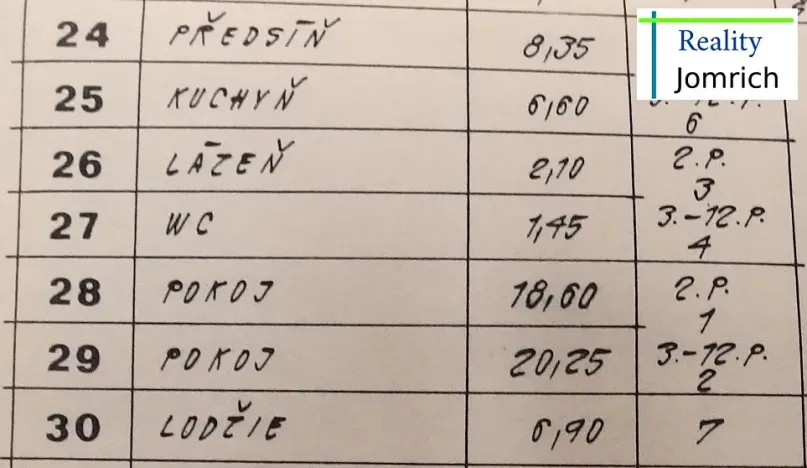 24 PŘEDSÍŇ 8,35
Reality
Jomrich
25 KUCHYŇ 6,60
6
26 LÁZEŇ 2,10 2.P.
3
27 WC 1,45 3.-12.P.
4
28 POKOJ 18,60 2.P.
1
29 POKOJ 20,25 3.-12.P.
2
30 LODŽIE 6,90 7